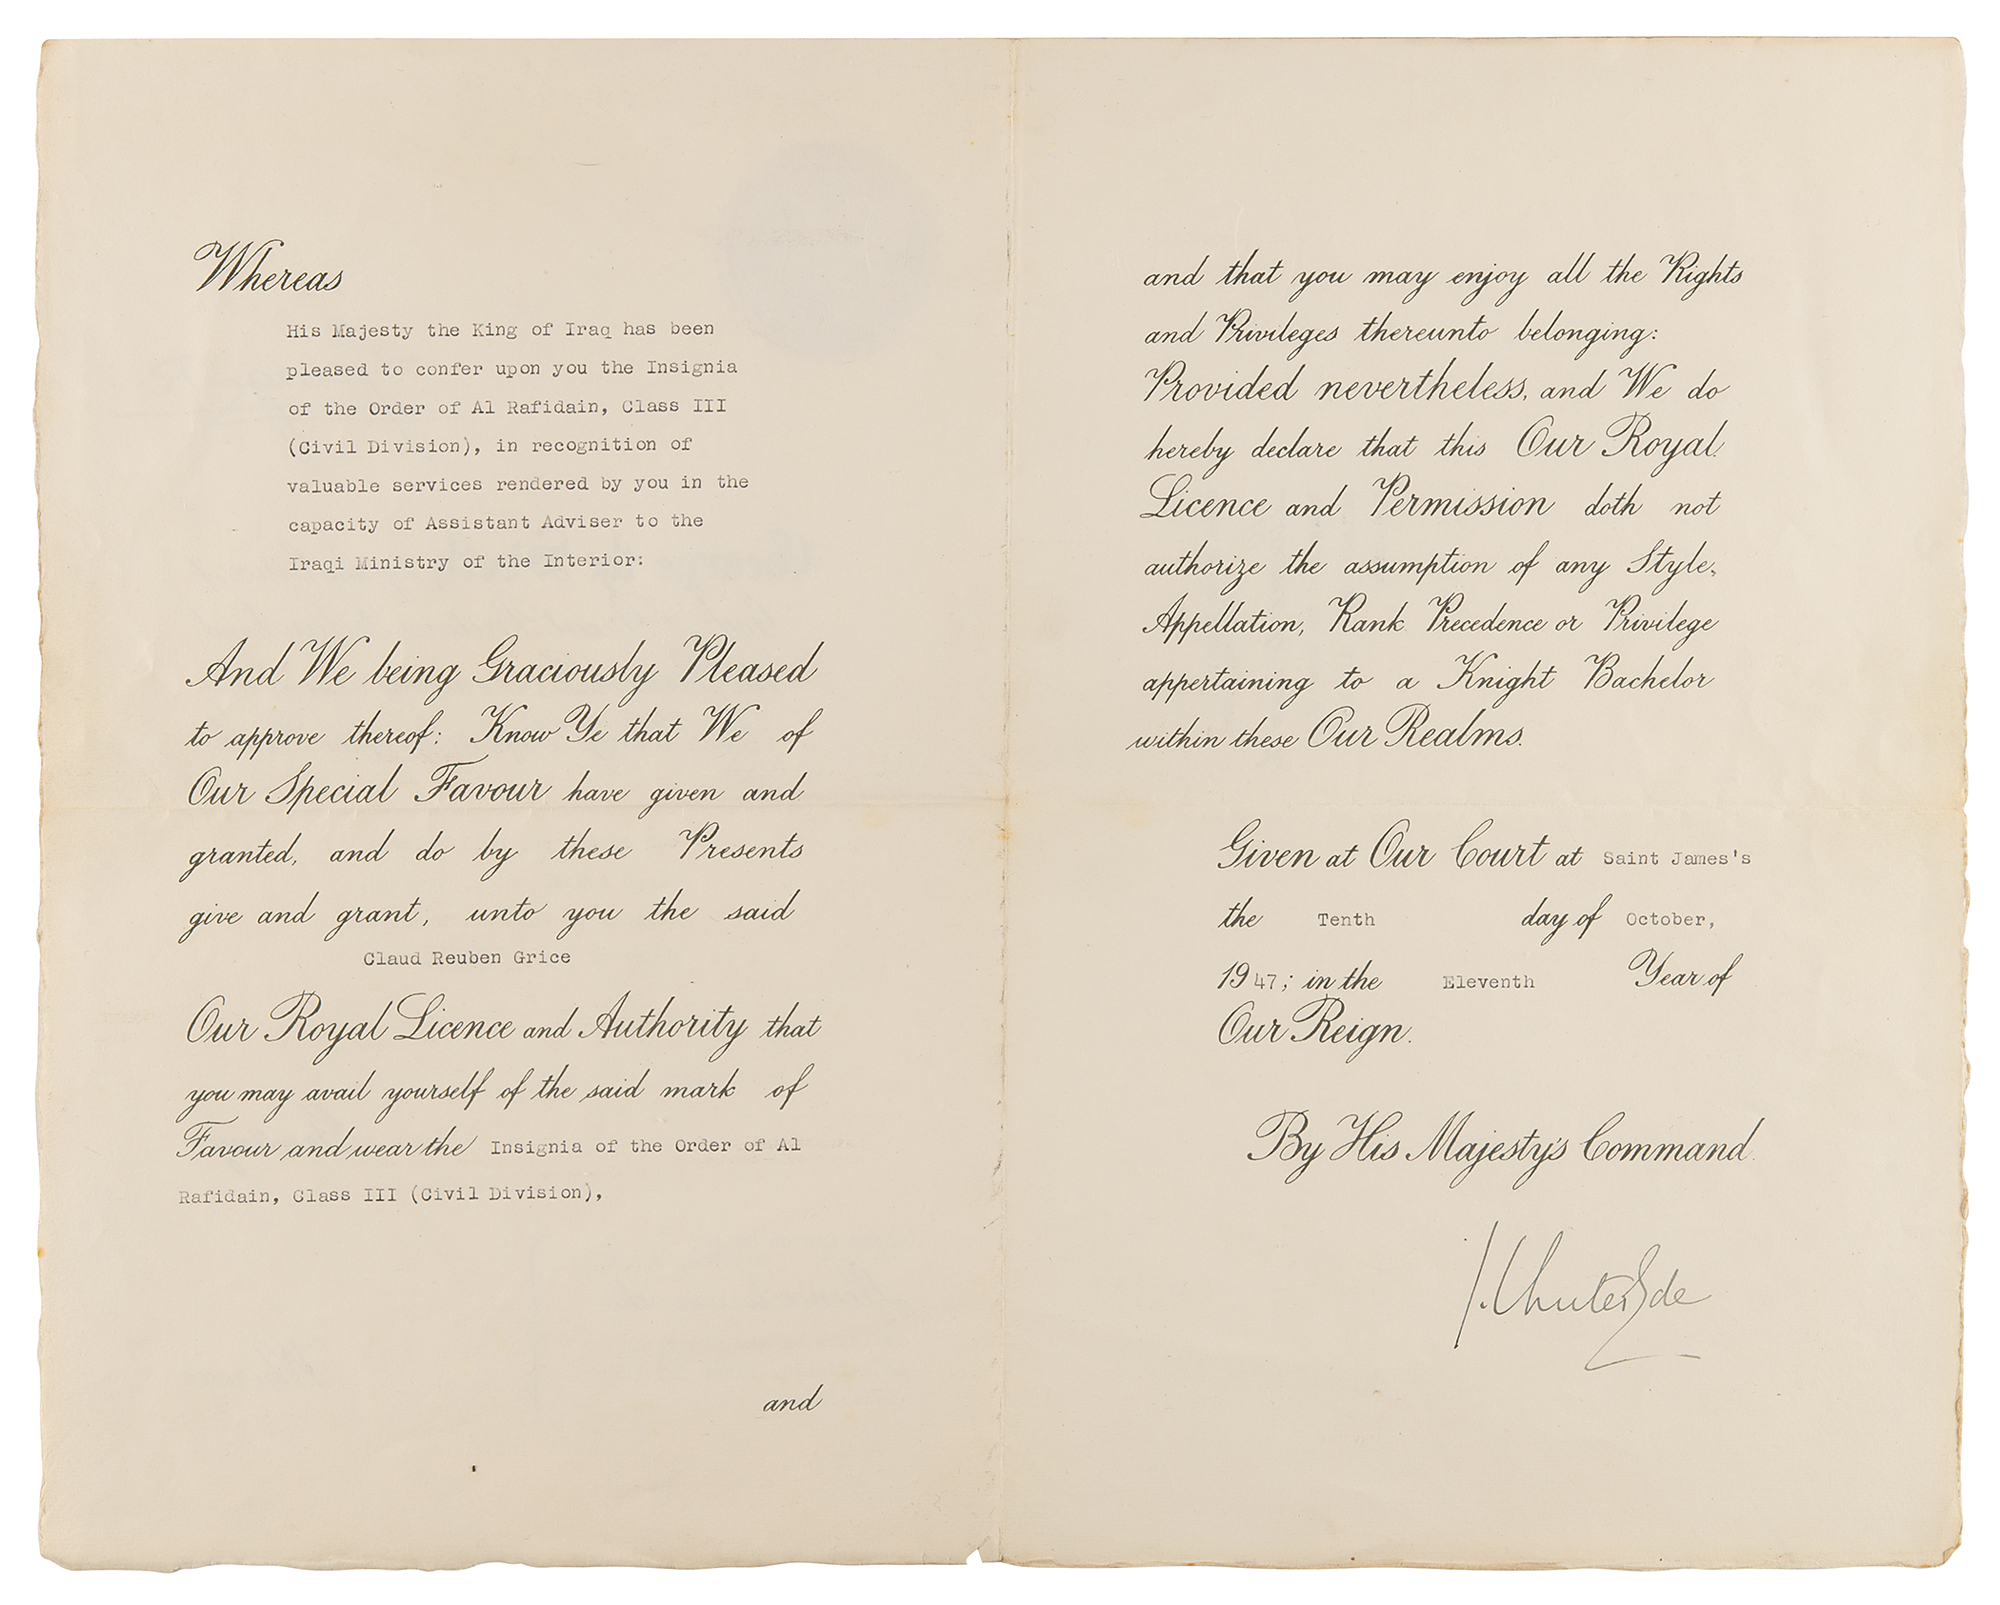 Whereas
His Majesty the King of Iraq has been
pleased to confer upon you the Insignia
of the Order of Al Rafidain, Class III
(Civil Division), in recognition of
valuable services rendered by you in the
capacity of Assistant Adviser to the
Iraqi Ministry of the Interior:
And We being Graciously Pleased
to approve thereof: Know Ye that We of
Our Special Favour have given and
granted, and do by these Presents
give and grant, unto you the said
Claud Reuben Grice
Our Royal Licence and Authority that
you may avail yourself of the said mark of
Favour and wear the Insignia of the Order of Al
Rafidain, Class III (Civil Division),
and
and that you may enjoy all the Rights
and Privileges thereunto belonging:
Provided nevertheless, and We do
hereby declare that this Our Royal
Licence and Permission doth not
authorize the assumption of any Style,
Appellation, Rank Precedence or Privilege
appertaining to a Knight Bachelor
within these Our Realms.
Given at Our Court at Saint James's
the Tenth day of October,
1947; in the Eleventh Year of
Our Reign.
By His Majesty's Command.
J. Chuter Ede